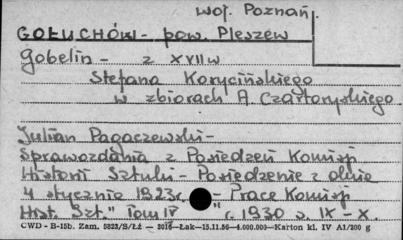 woj. Poznań.
GOŁUCHÓW - pow. Pleszew
Gobelin - z XVII w
Stefana Korycińskiego
w zbiorach A. Czartoryskiego
Julian Pagaczewski -
Sprawozdania z Posiedzeń Komisji
Historii Sztuki - Posiedzenie z dnia
4 stycznia 1923 r. - Prace Komisji
Hist. Szt." Tom IV " r. 1930 s. IX - X.
CWD - B-15b. Zam. 5823/S/Łż — 3016—Łak—15.11.56—4.000.000—Karton kl. IV A1/200 g